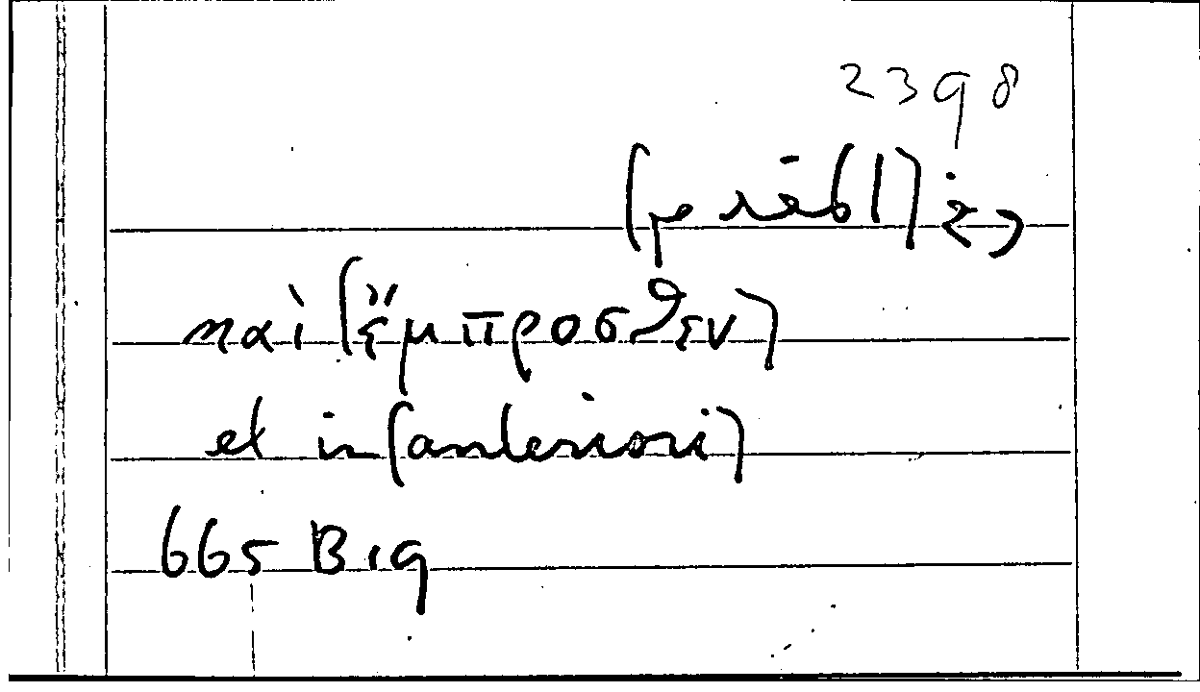 2398
καὶ (ἔμπροσθεν)
et in (anteriori)
665 B 19